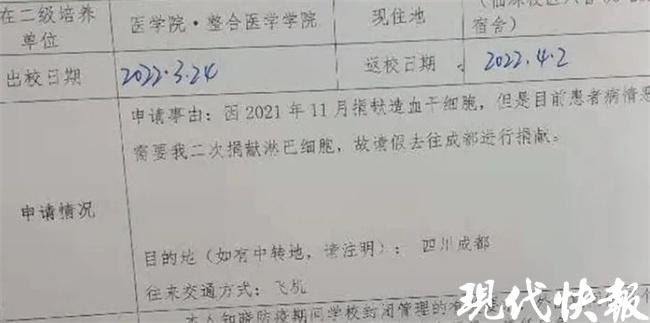 在二级培养
单位
医学院·整合医学学院
现住地
宿舍）
出校日期
2022.3.24
返校日期
2022.4.2
申请情况
申请事由：因2021年11月捐献造血干细胞，但是目前患者病情恶
需要我二次捐献淋巴细胞，故请假去往成都进行捐献。
目的地（如有中转地，请注明）：四川成都
往来交通方式：飞机
本人知晓防疫期间学校封闭管理的有
现代快報